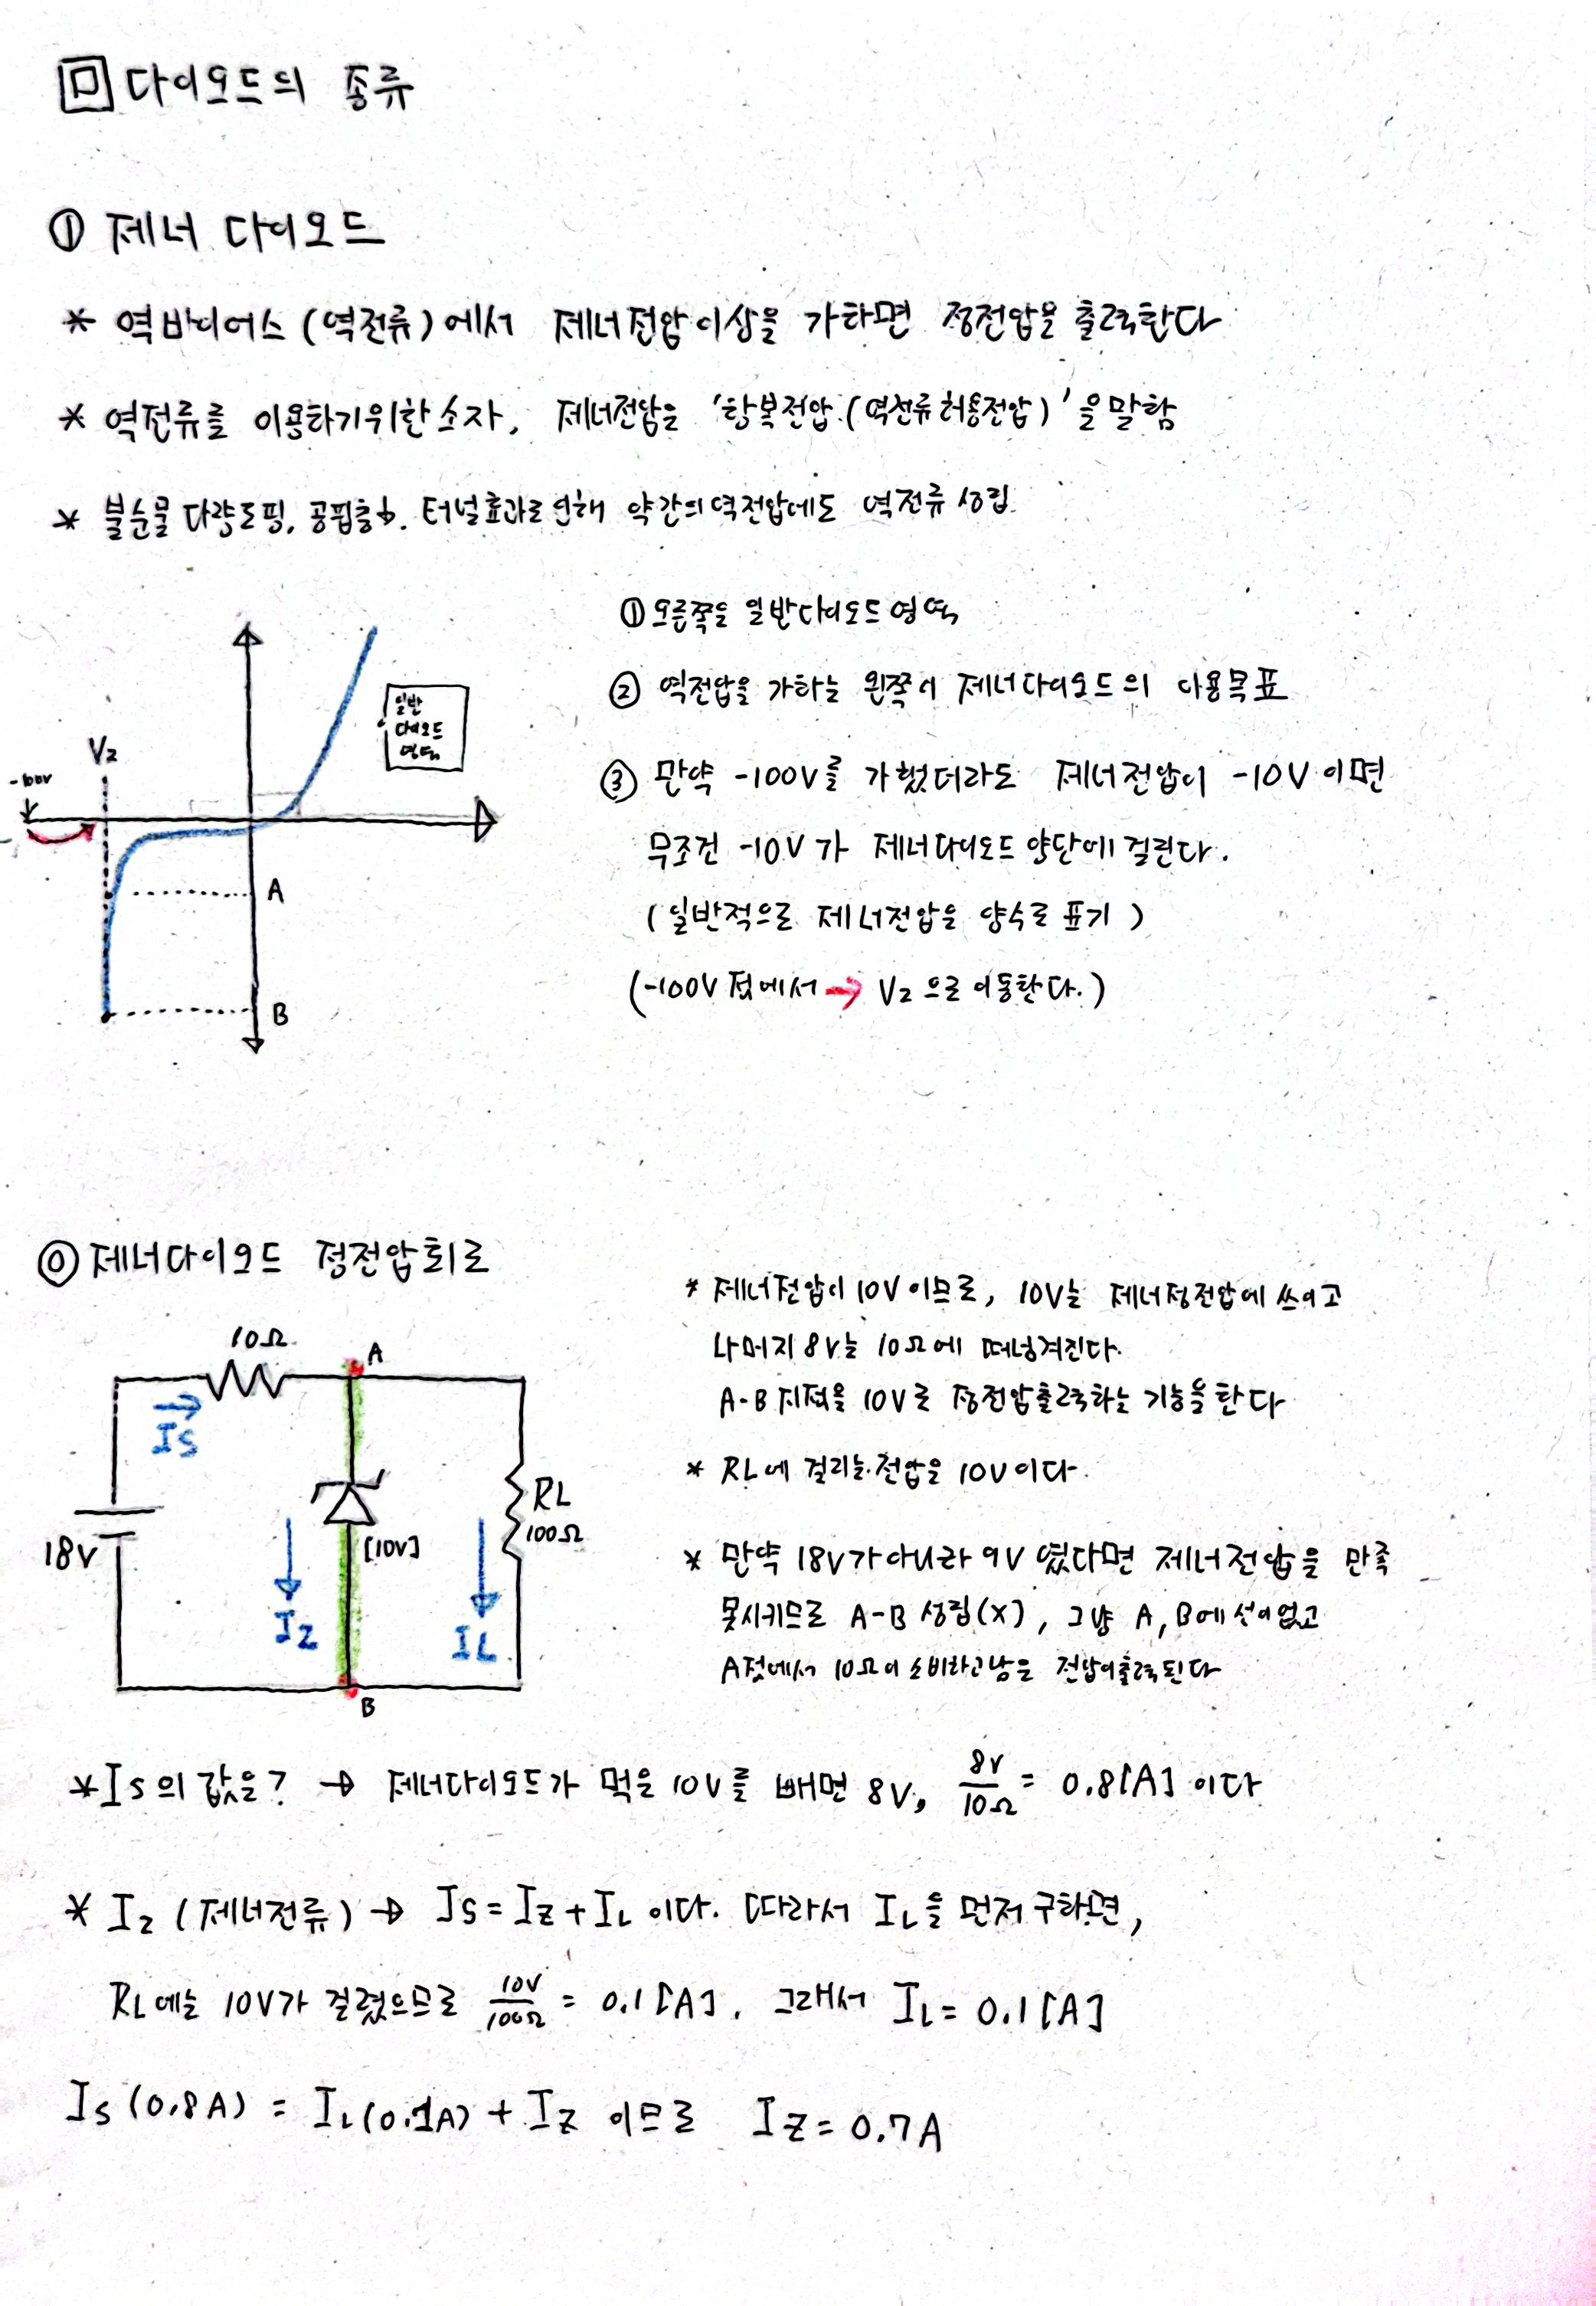 回 다이오드의 종류
① 제너 다이오드
* 역바이어스 (역전류)에서 제너전압이상을 가하면 정전압을 출력한다
* 역전류를 이용하기위한 소자, 제너전압은 '항복전압 (역전류허용전압)'을 말함
* 불순물 다량도핑, 공핍층↓. 터널효과로 인해 약간의 역전압에도 역전류 성립
① 오른쪽은 일반다이오드 영역
② 역전압을 가하는 왼쪽이 제너다이오드의 이용목표
③ 만약 -100V를 가했더라도 제너전압이 -10V 이면
무조건 -10V가 제너다이오드 양단에 걸린다.
(일반적으로 제너전압을 양수로 표기)
(-100V 점에서 → Vz 으로 이동한다.)
일반
다이오드
영역
Vz
-100V
A
B
◎ 제너다이오드 정전압회로
10Ω
A
IS
18V
[10V]
IZ
IL
RL
100Ω
B
* 제너전압이 10V 이므로, 10V는 제너정전압에 쓰이고
나머지 8V는 10Ω에 떠넘겨진다.
A-B 지점을 10V로 정전압출력하는 기능을 한다
* RL에 걸리는 전압은 10V이다.
* 만약 18V가아니라 9V 였다면 제너전압을 만족
못시키므로 A-B 성립(X), 그냥 A, B에 선이없고
A점에서 10Ω이 소비하고남은 전압이출력된다
* Is의 값은? → 제너다이오드가 먹은 10V를 빼면 8V, 8V/10Ω = 0.8[A] 이다
* Iz (제너전류) → Is = Iz + IL 이다. 따라서 IL을 먼저 구하면,
RL에는 10V가 걸렸으므로 10V/100Ω = 0.1[A]. 그래서 IL = 0.1[A]
Is(0.8A) = IL(0.1A) + Iz 이므로 Iz = 0.7A